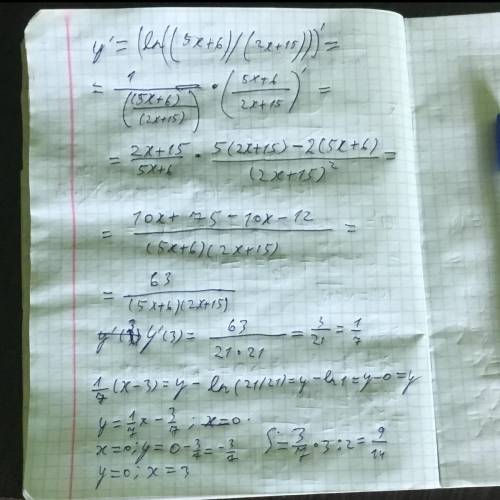 y' = (ln((5x+6)/(2x+15)))' =
= 1/((5x+6)/(2x+15)) • ((5x+6)/(2x+15))' =
= (2x+15)/(5x+6) • (5(2x+15)-2(5x+6))/(2x+15)² =
= (10x+75-10x-12)/((5x+6)(2x+15)) =
= 63/((5x+6)(2x+15))
y'(3) = 63/(21•21) = 3/21 = 1/7
1/7(x-3) = y - ln(21/21) = y - ln1 = y-0 = y
y = 1/7x - 3/7; x=0
x=0; y = 0 - 3/7 = -3/7 S = 3/7 • 3 : 2 = 9/14
y=0; x=3